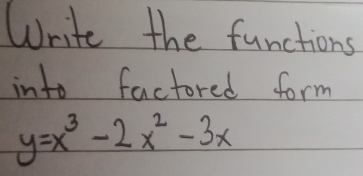 Write the functions
into factored form
y=x³ -2x² -3x